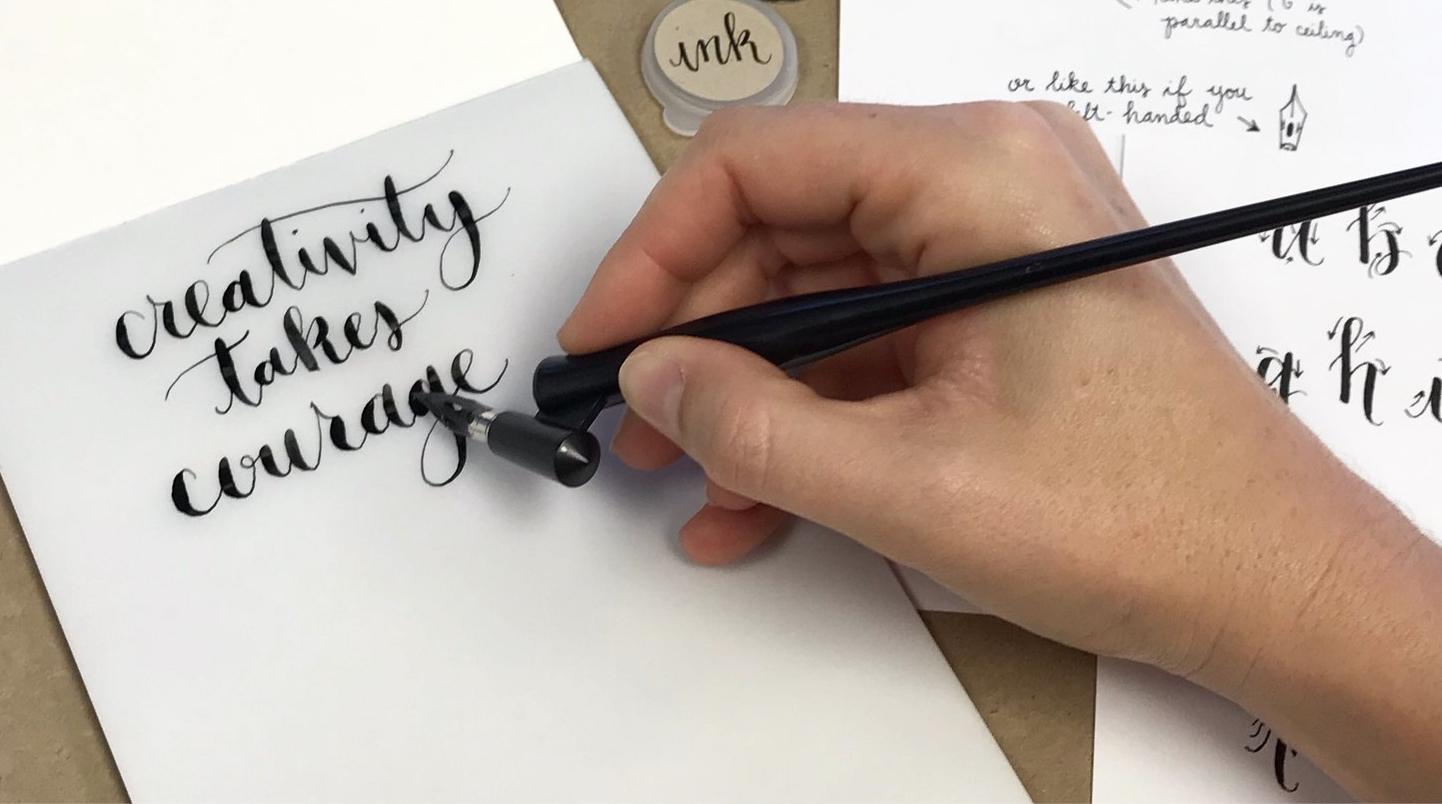 creativity
takes
courage
ink
parallel to ceiling)
or like this if you
handed
h